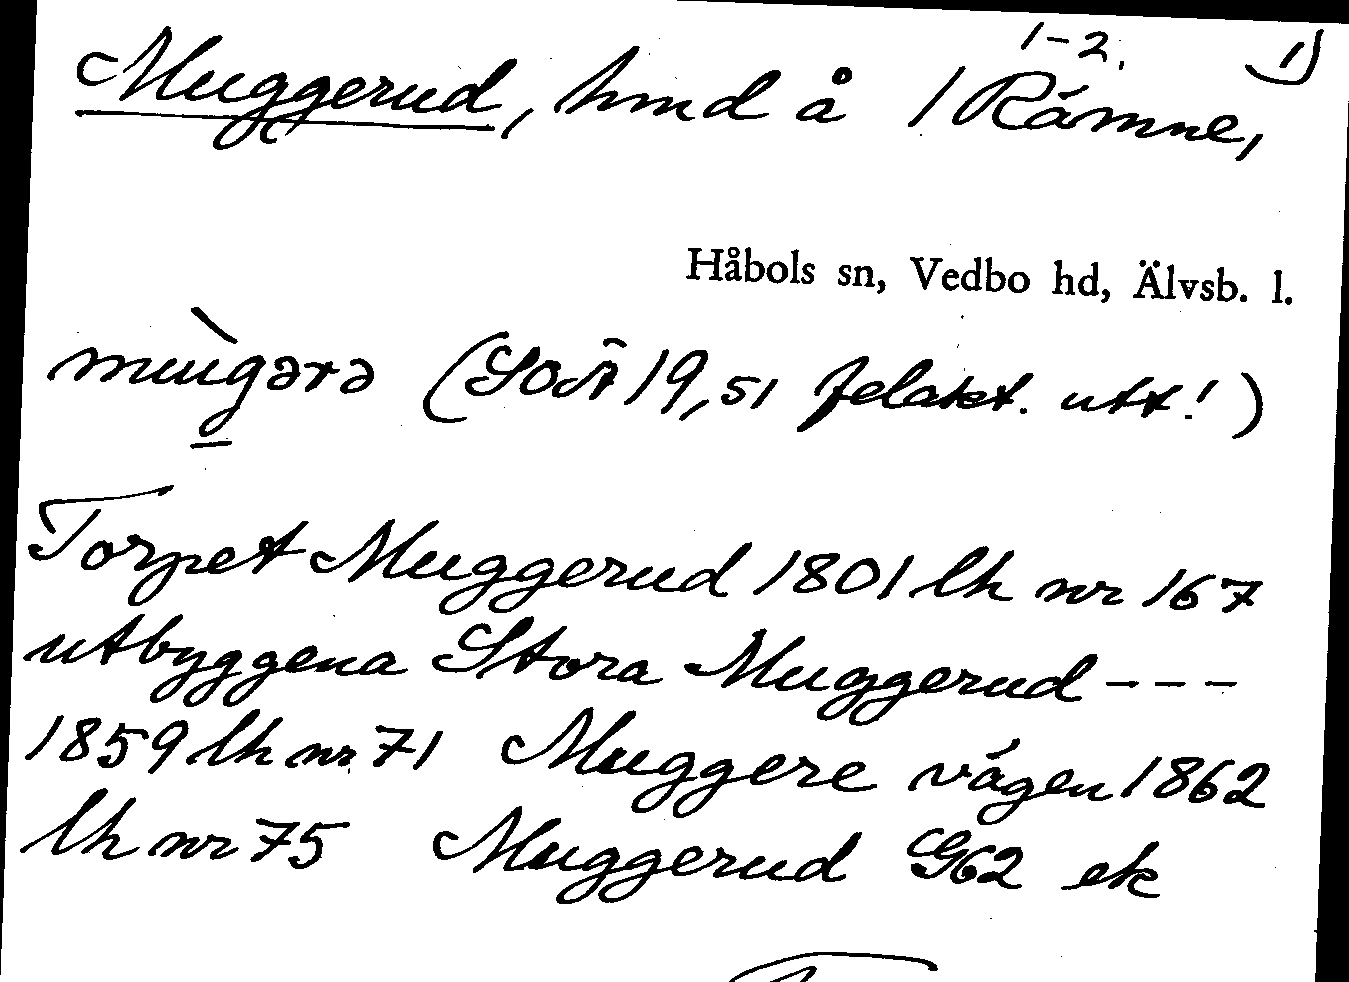 1-2. 1)
Muggerud, hmd å 1 Råmne,
Håbols sn, Vedbo hd, Älvsb. l.
mùgərə (SOÄ 19,51 felakt. utt.!)
Torpet Muggerud 1801 lh nr 167
utbyggena Stora Muggerud ---
1859 lh nr 71 Muggere vägen 1862
lh nr 75 Muggerud G62 ek